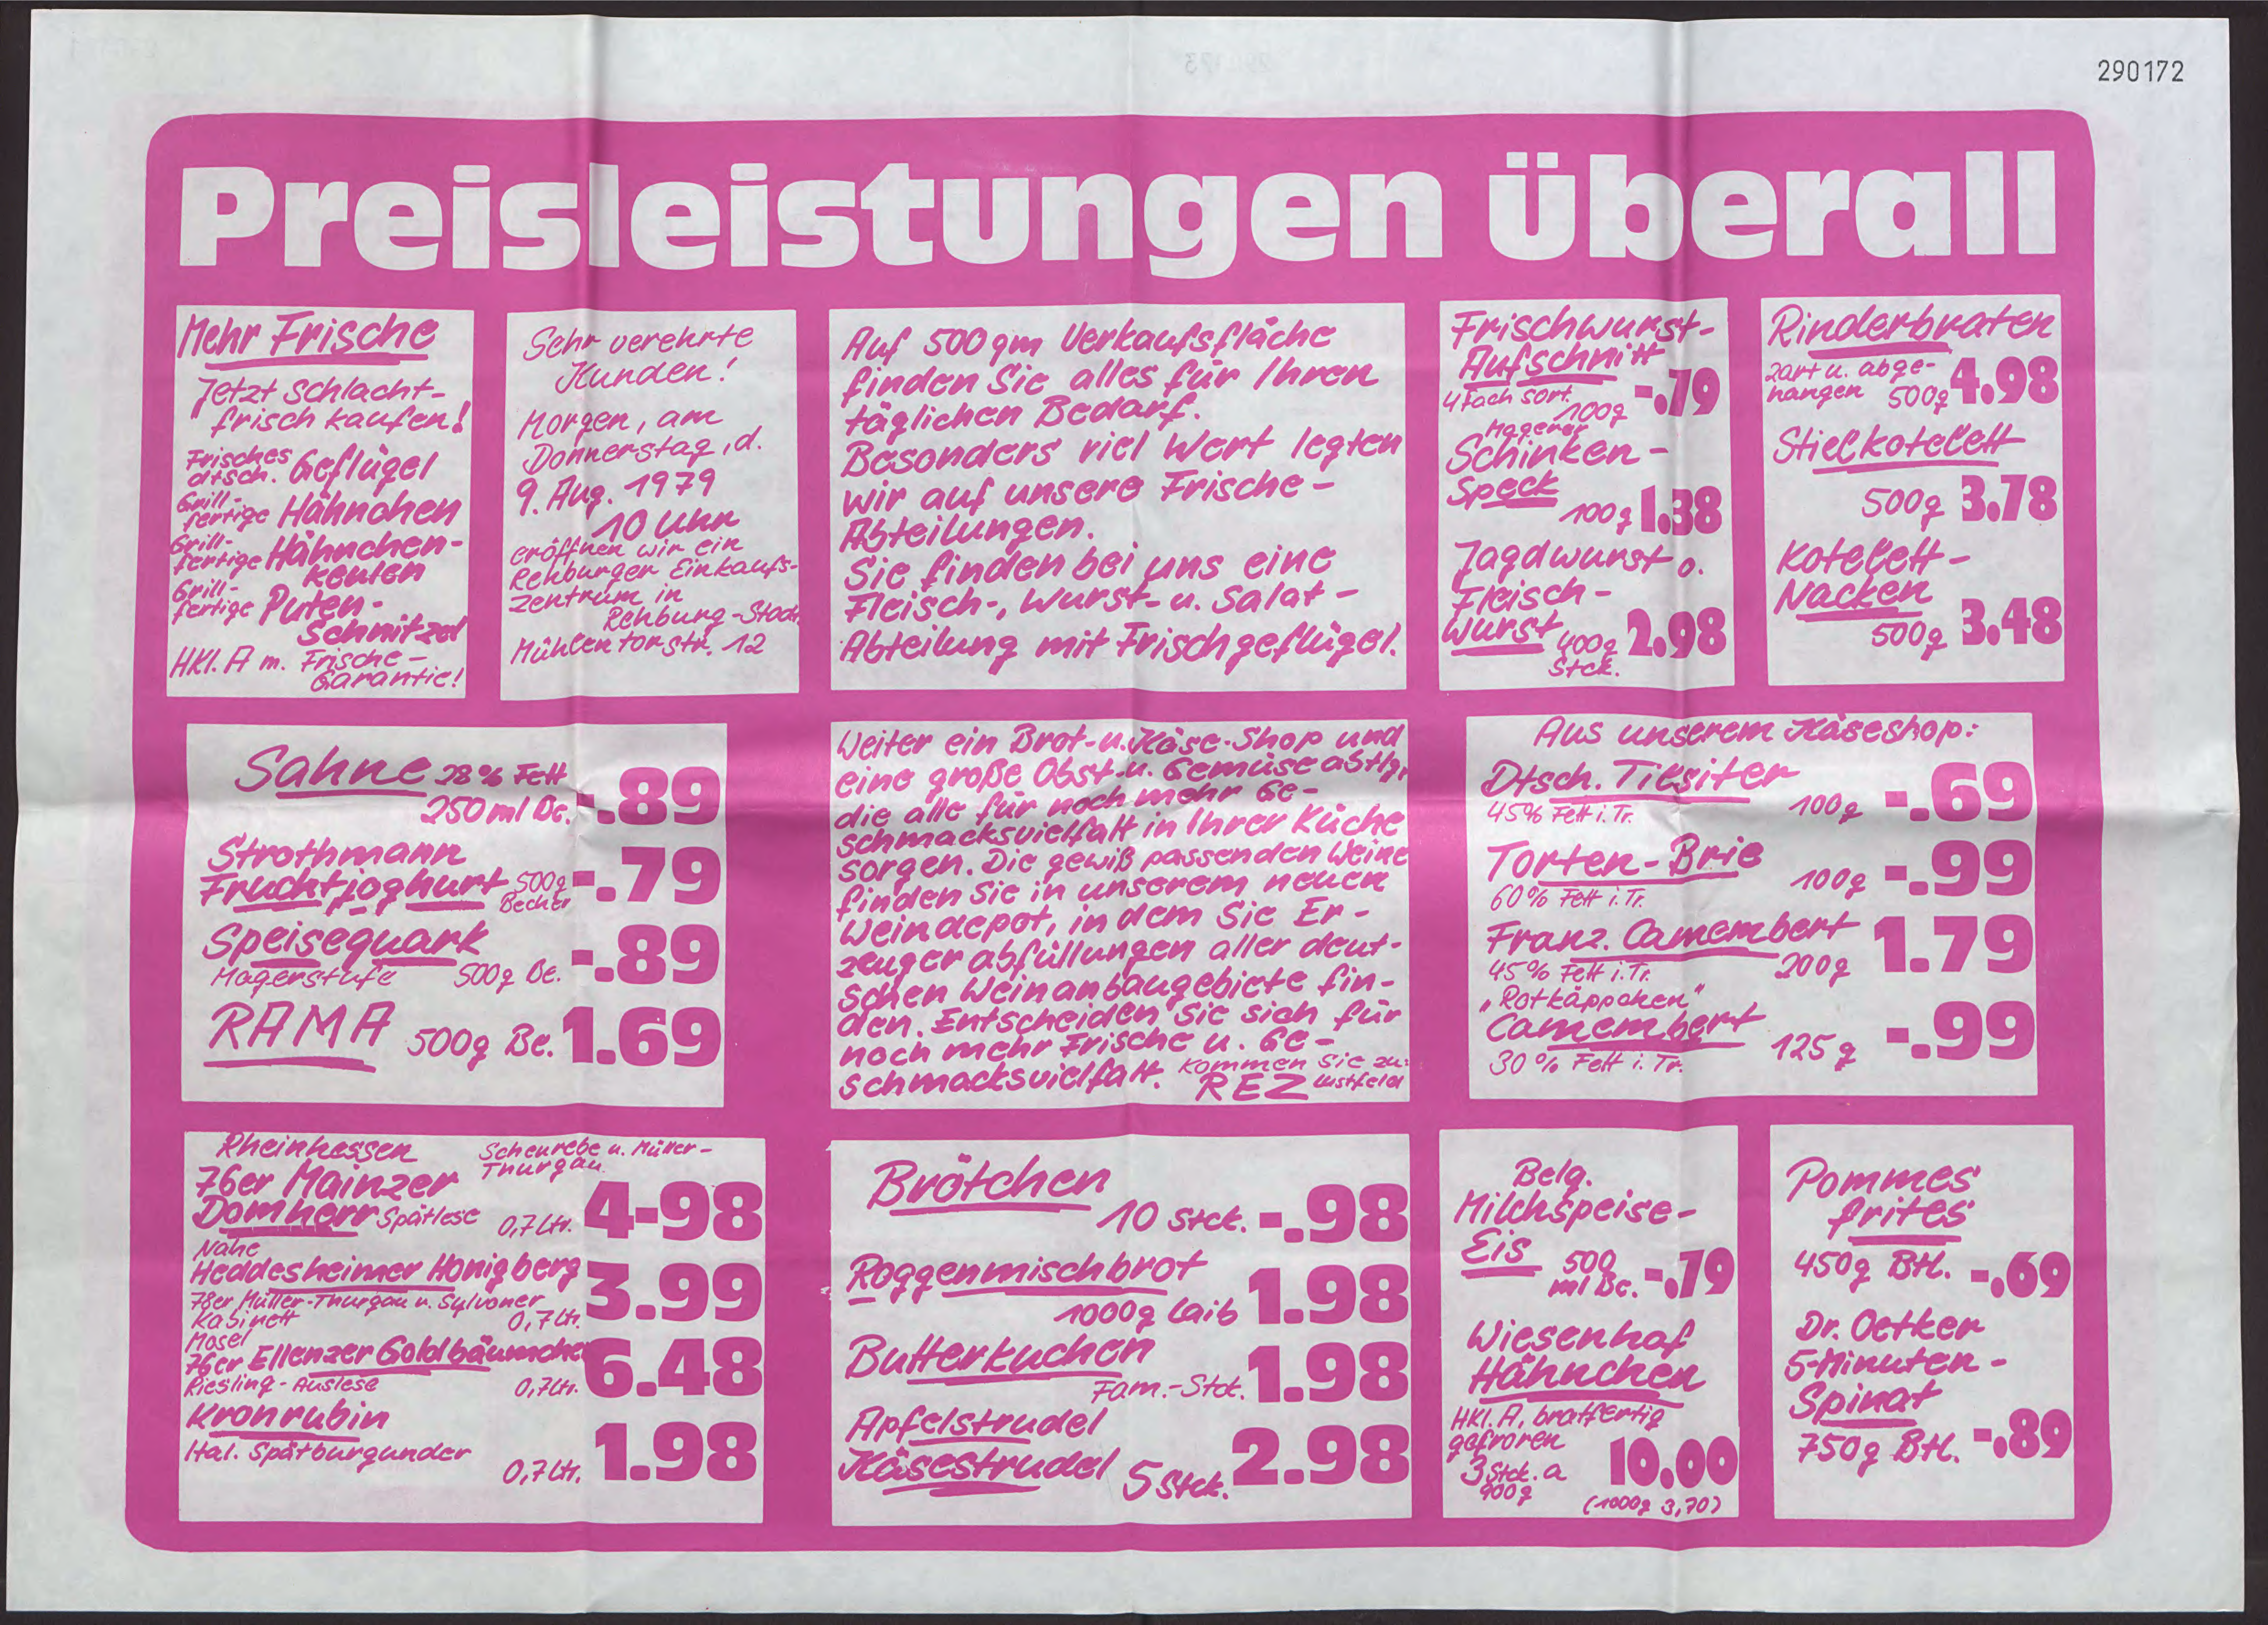 290172
Preisleistungen überall
Mehr Frische
Jetzt schlacht-
frisch kaufen!
Frisches
dtsch. Geflügel
Grill-
fertige Hähnchen
Grill-
fertige Hähnchen-
keulen
Grill-
fertige Puten-
Schnitzel
HKl. A m. Frische-
Garantie!
Sehr verehrte
Kunden!
Morgen, am
Donnerstag, d.
9. Aug. 1979
10 Uhr
eröffnen wir ein
Rehburger Einkaufs-
zentrum in
Rehburg-Stadt
Mühlentorstr. 12
Auf 500 qm Verkaufsfläche
finden Sie alles für Ihren
täglichen Bedarf.
Besonders viel Wert legten
wir auf unsere Frische-
Abteilungen.
Sie finden bei uns eine
Fleisch-, Wurst- u. Salat-
Abteilung mit Frischgeflügel.
Frischwurst-
Aufschnitt
4fach sort.
100g -.79
Magerer
Schinken-
Speck
100g 1.38
Jagdwurst o.
Fleisch-
wurst 400g 2.98
Stck.
Rinderbraten
zart u. abge-
hangen 500g 4.98
Stielkotelett
500g 3.78
Kotelett-
Nacken
500g 3.48
Sahne 28% Fett
250 ml Be. -.89
Strothmann
Fruchtjoghurt 500g
Becher -.79
Speisequark
Magerstufe 500g Be. -.89
RAMA 500g Be. 1.69
Weiter ein Brot- u. Käse-Shop und
eine große Obst- u. Gemüseabtlg,
die alle für noch mehr Ge-
schmacksvielfalt in Ihrer Küche
sorgen. Die gewiß passenden Weine
finden Sie in unserem neuen
Weindepot, in dem Sie Er-
zeugerabfüllungen aller deut-
schen Weinanbaugebiete fin-
den. Entscheiden Sie sich für
noch mehr Frische u. Ge-
schmacksvielfalt. Kommen Sie zu:
REZ Lustfeld
Aus unserem Käseshop:
Dtsch. Tilsiter
45% Fett i. Tr. 100g -.69
Torten-Brie
60% Fett i. Tr. 100g -.99
Franz. Camembert
45% Fett i. Tr. 200g 1.79
"Rotkäppchen"
Camembert
30% Fett i. Tr. 125g -.99
Rheinhessen Scheurebe u. Müller-
Thurgau
76er Mainzer
Domherr Spätlese 0,7 Ltr. 4-98
Nahe
Heddesheimer Honigberg
78er Müller-Thurgau u. Sylvaner
Kabinett 0,7 Ltr. 3.99
Mosel
76er Ellenzer Goldbäumchen
Riesling-Auslese 0,7 Ltr. 6.48
Kronrubin
Ital. Spätburgunder 0,7 Ltr. 1.98
Brötchen
10 Stck. -.98
Roggenmischbrot
1000g Laib 1.98
Butterkuchen
Fam.-Stck. 1.98
Apfelstrudel
Käsestrudel 5 Stck. 2.98
Belg.
Milchspeise-
Eis 500
ml Be. -.79
Wiesenhof
Hähnchen
HKl. A, bratfertig
gefroren
3 Stck. a
900g 10.00
(1000g 3,70)
Pommes
frites
450g Btl. -.69
Dr. Oetker
5-Minuten-
Spinat
750g Btl. -.89